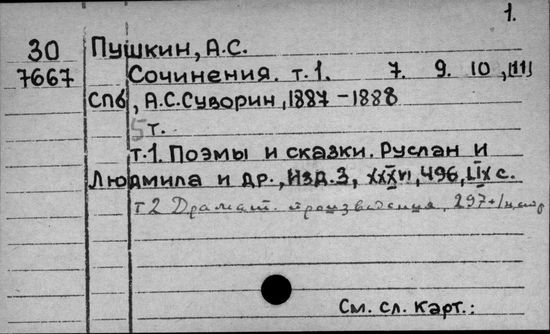 1.
30 Пушкин, А.С.
7667 Сочинения. т.1. 7. 9. 10, [11]
СПб, А.С.Суворин, 1887-1888
5 т.
т.1. Поэмы и сказки. Руслан и
Людмила и др., Изд.3, XXXVI, 496, LIX с.
т 2 Драмат. произведения, 297+
См. сл. карт.: